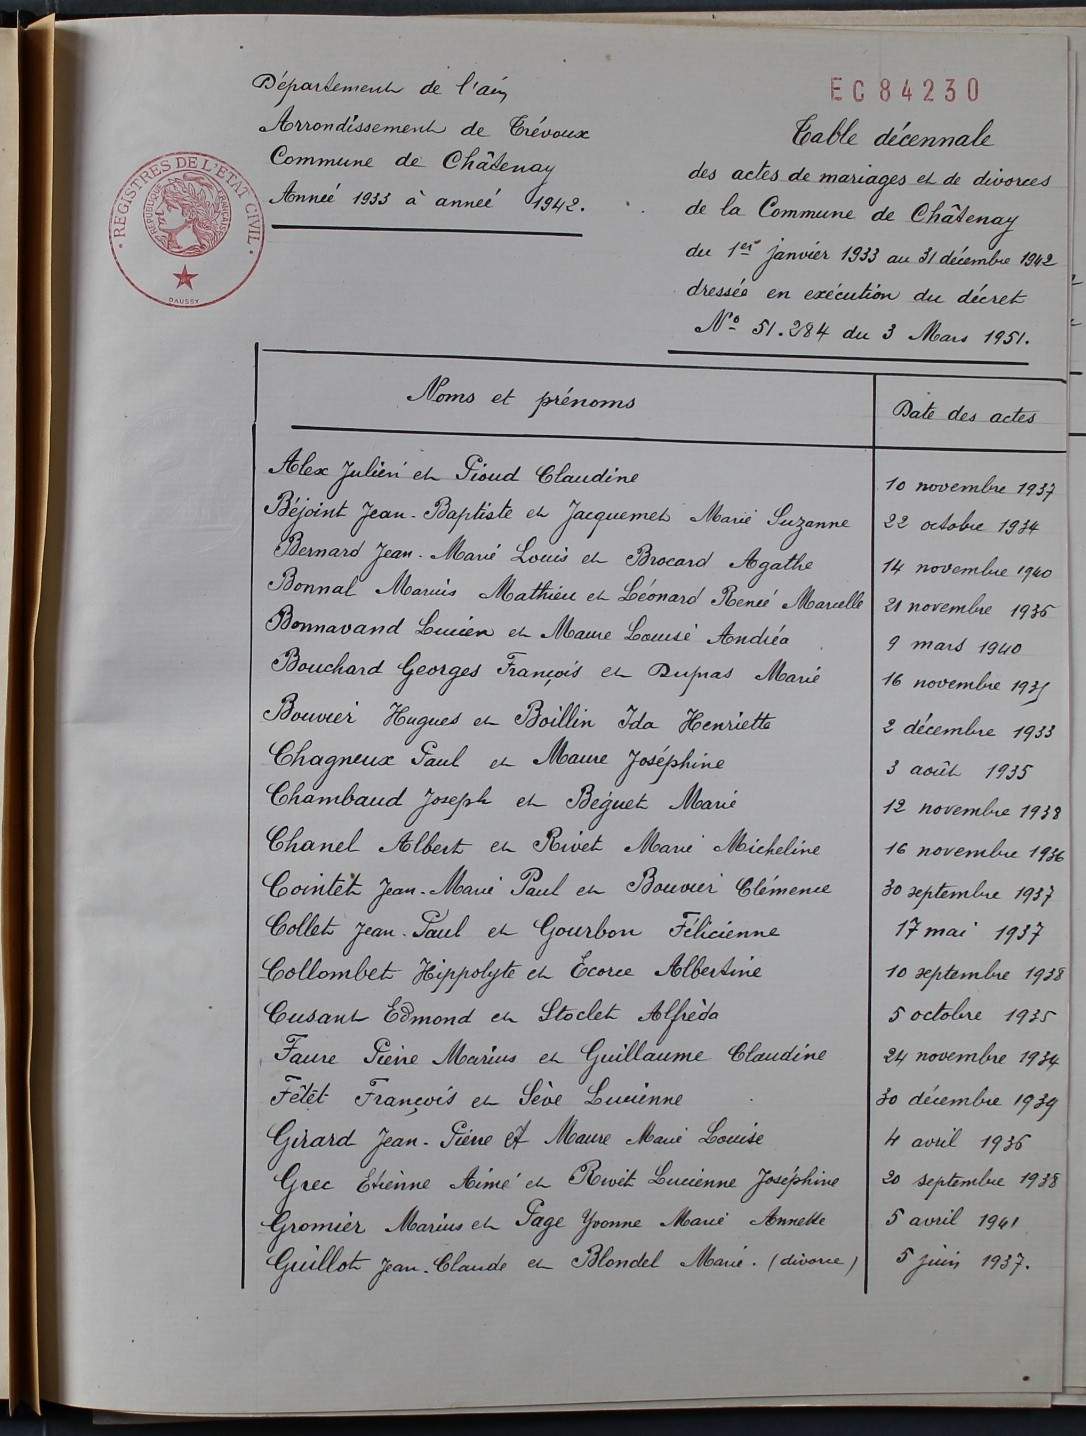 Département de l'ain
Arrondissement de Trévoux
Commune de Châtenay
Année 1933 à année 1942.
REGISTRES DE L'ETAT CIVIL
REPUBLIQUE FRANÇAISE
DAUSSY
EC84230
Table décennale
des actes de mariages et de divorces
de la Commune de Châtenay
du 1er janvier 1933 au 31 décembre 1942
dressée en exécution du décret
No 51.284 du 3 Mars 1951.
Noms et prénoms Date des actes
Alex Julien et Pioud Claudine 10 novembre 1937
Béjoint Jean-Baptiste et Jacquemet Marie Suzanne 22 octobre 1934
Bernard Jean-Marie Louis et Brocard Agathe 14 novembre 1940
Bonnal Marius Mathieu et Léonard Renée Marcelle 21 novembre 1936
Bonnavand Lucien et Maure Louise Andréa 9 mars 1940
Bouchard Georges François et Dupras Marie 16 novembre 1935
Bouvier Hugues et Boillin Ida Henriette 2 décembre 1933
Chagneux Paul et Maure Joséphine 3 août 1935
Chambaud Joseph et Béguet Marie 12 novembre 1938
Chanel Albert et Rivet Marie Micheline 16 novembre 1936
Cointet Jean-Marie Paul et Bouvier Clémence 30 septembre 1937
Collet Jean-Paul et Gourbon Félicienne 17 mai 1937
Collombet Hippolyte et Ecorce Albertine 10 septembre 1938
Cusant Edmond et Stoclet Alfrèda 5 octobre 1935
Faure Pierre Marius et Guillaume Claudine 24 novembre 1934
Fêtet François et Sève Lucienne 30 décembre 1939
Girard Jean-Pierre et Maure Marie Louise 4 avril 1936
Grec Etienne Aimé et Rivet Lucienne Joséphine 20 septembre 1938
Gromier Marius et Page Yvonne Marie Annette 5 avril 1941
Guillot Jean-Claude et Blondel Marie. (divorce) 5 juin 1937.